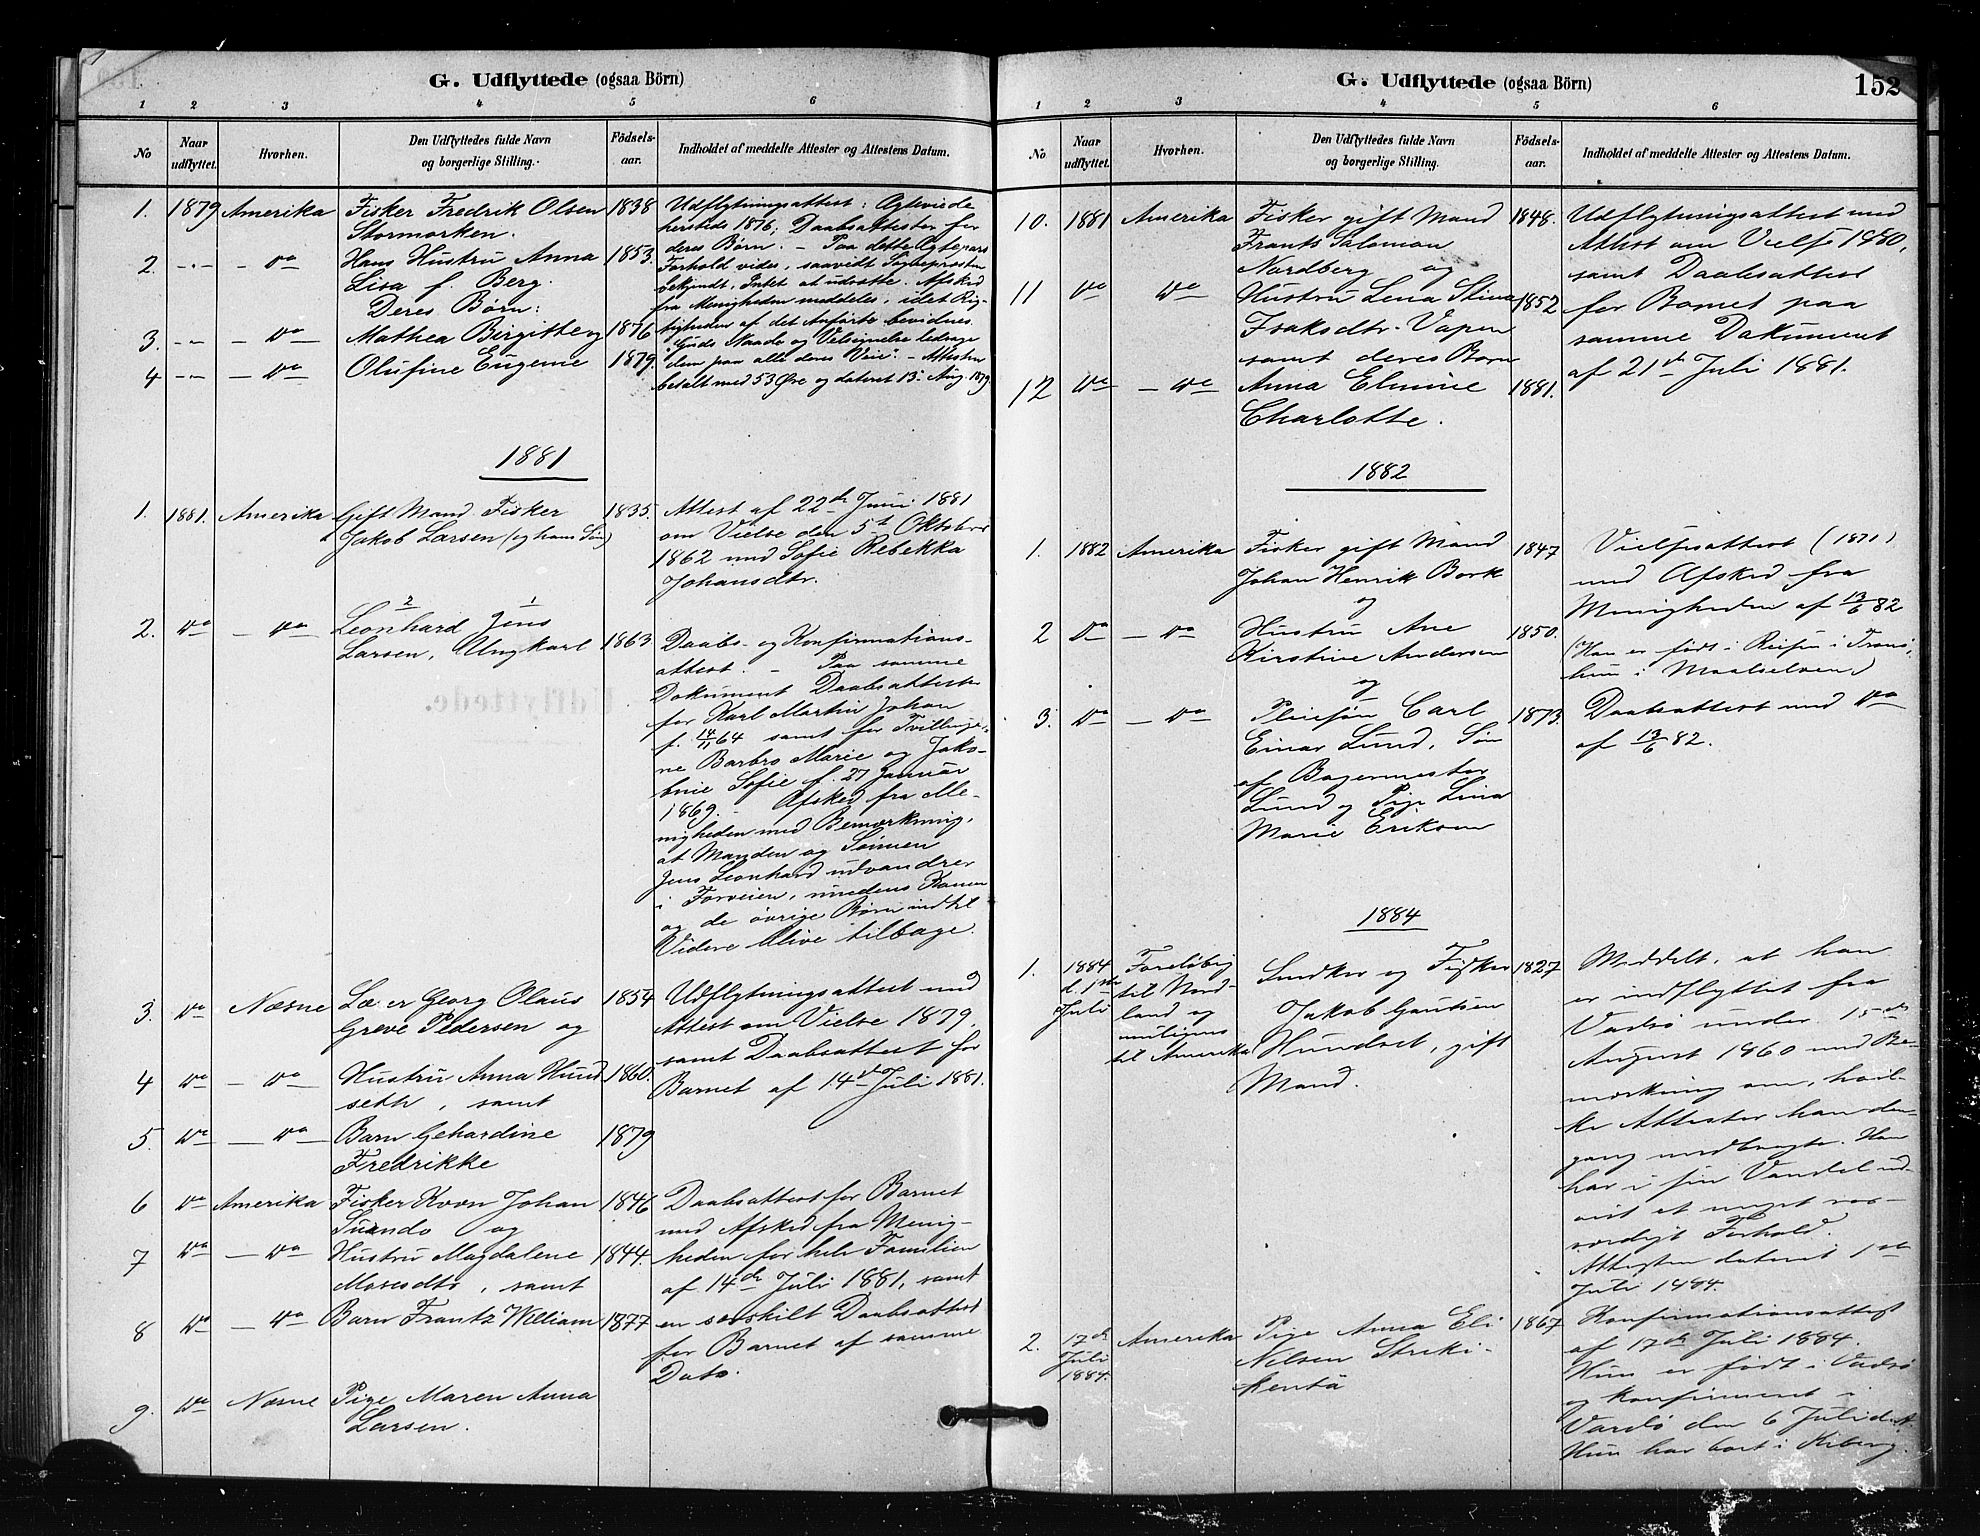 G. Udflyttede (ogsaa Börn)
1 2 3 4 5 6
No
Naar udflyttet.
Hvorhen.
Den Udflyttedes fulde Navn og borgerlige Stilling.
Födsels-aar.
Indholdet af meddelte Attester og Attestens Datum.
1. 1879 Amerika Fisker Fredrik Olsen 1838
Stormorken.
Udflytningsattest: Ægteviede
hersteds 1876; Daabsattester for
deres Børn. – Paa dette Ægtepars
Forhold vides, saavidt Sognepræsten
bekjendt, Intet at udsætte. Afsked
fra Menigheden meddeles, idet Rig-
tigheden af det Anførte bevidnes.
"Guds Naade og Velsignelse ledsage
dem paa alle deres Veie". – Attesten
betalt med 53 Øre og dateret 13. Aug. 1879.
2. -"- – do Hans Hustru Anna 1853.
Lisa f. Berg.
Deres Børn:
3. -"- – do Mathea Birgitte og 1876
4 -"- – do Olufine Eugenie 1879.
1881
1. 1881. Amerika Gift Mand Fisker 1835.
Jakob Larsen (og hans Søn)
Attest af 22de Juni 1881
om Vielse den 5te Oktober
1862 med Sofie Rebekka
Johansdtr.
2. do – do Leonhard Jens
2 1
Larsen, Ungkarl 1863
Daabs- og Konfirmations-
attest. – Paa samme
Dokument Daabsattester
for Karl Martin Johan
f. 14/11 64 samt for Tvillinge-
ne Barbro Marie og Jako-
bine Sofie f. 27 Januar
1869. – Afsked fra Me-
nigheden med Bemærkning,
at Manden og Sønnen
Jens Leonhard udvandrer
i Forveien, medens Konen
og de øvrige Børn indtil
Videre blive tilbage.
3. do Næsne Georg Olaus 1854
Greve Pedersen og
Udflytningsattest med
Attest om Vielse 1879,
samt Daabsattest for
Barnet af 14de Juli 1881.
4 do – do Hustru Anna Hund 1860.
seth, samt
5 do – do Barn Gehardine 1879
Fredrikke
6 do Amerika Fisker Kvæn Johan 1846
og
Daabsattest for Barnet
med Afsked fra Menig-
heden for hele Familien
af 14de Juli 1881, samt
en særskilt Daabsattest
for Barnet af samme
Dato.
7 do – do Hustru Magdalene 1844.
Mosesdtr, samt
8 do – do Barn Frantz William 1877
9. do Næsne Pige Maren Anna
Larsen.
G. Udflyttede (ogsaa Börn)
152
1 2 3 4 5 6
No
Naar udflyttet.
Hvorhen.
Den Udflyttedes fulde Navn og borgerlige Stilling.
Födsels-aar.
Indholdet af meddelte Attester og Attestens Datum.
10. 1881 Amerika Fisker gift Mand 1848.
Frants Salomon
Nordberg og
Udflytningsattest med
Attest om Vielse 1880,
samt Daabsattest
for Barnet paa
samme Dokument
af 21de Juli 1881.
11 do do Hustru Lena Stina 1852
Isaksdtr. Vapen
samt deres Barn
12 do – do Anna Elmine 1881.
Charlotte.
1882
1. 1882 Amerika Fisker gift Mand 1847
Johan Henrik Bork
og
Vielsesattest (1871)
med Afsked fra
Menigheden af 13/6 82
(Han er født i Reisen i Tromsø,
hun i Maalselven)
2 do – do Hustru Ane 1850.
Kirstine Andersen
og
3. do – do Pleiesøn Carl 1873.
Einar Lund, Søn
af Bagermester
Lund og Pige Lina
Marie Eriksen
Daabsattest med do
af 13/6 82.
1884
1. 1884 d. 1ste Juli
Foreløbig
til Nord-
land og
muligens
til Amerika
og Fisker 1827
Jakob Gautsen
Hundset, gift
Mand.
Meddelt, at han
er indflyttet fra
Vadsø under 15de
August 1860 med Be-
mærkning om, hvil-
ke Attester han den-
gang medbragte. Han
har i sin Vandel ud-
vist et meget ros-
værdigt Forhold.
Attesten dateret 1ste
Juli 1884.
2. 17de Juli 1884. Amerika Pige Anna Eli 1867
Nilsen
Konfirmationsattest
af 17de Juli 1884.
Hun er født i Vadsø
og konfirmeret i
Vardø den 6 Juli d.A.
Hun har boet i Kiberg.